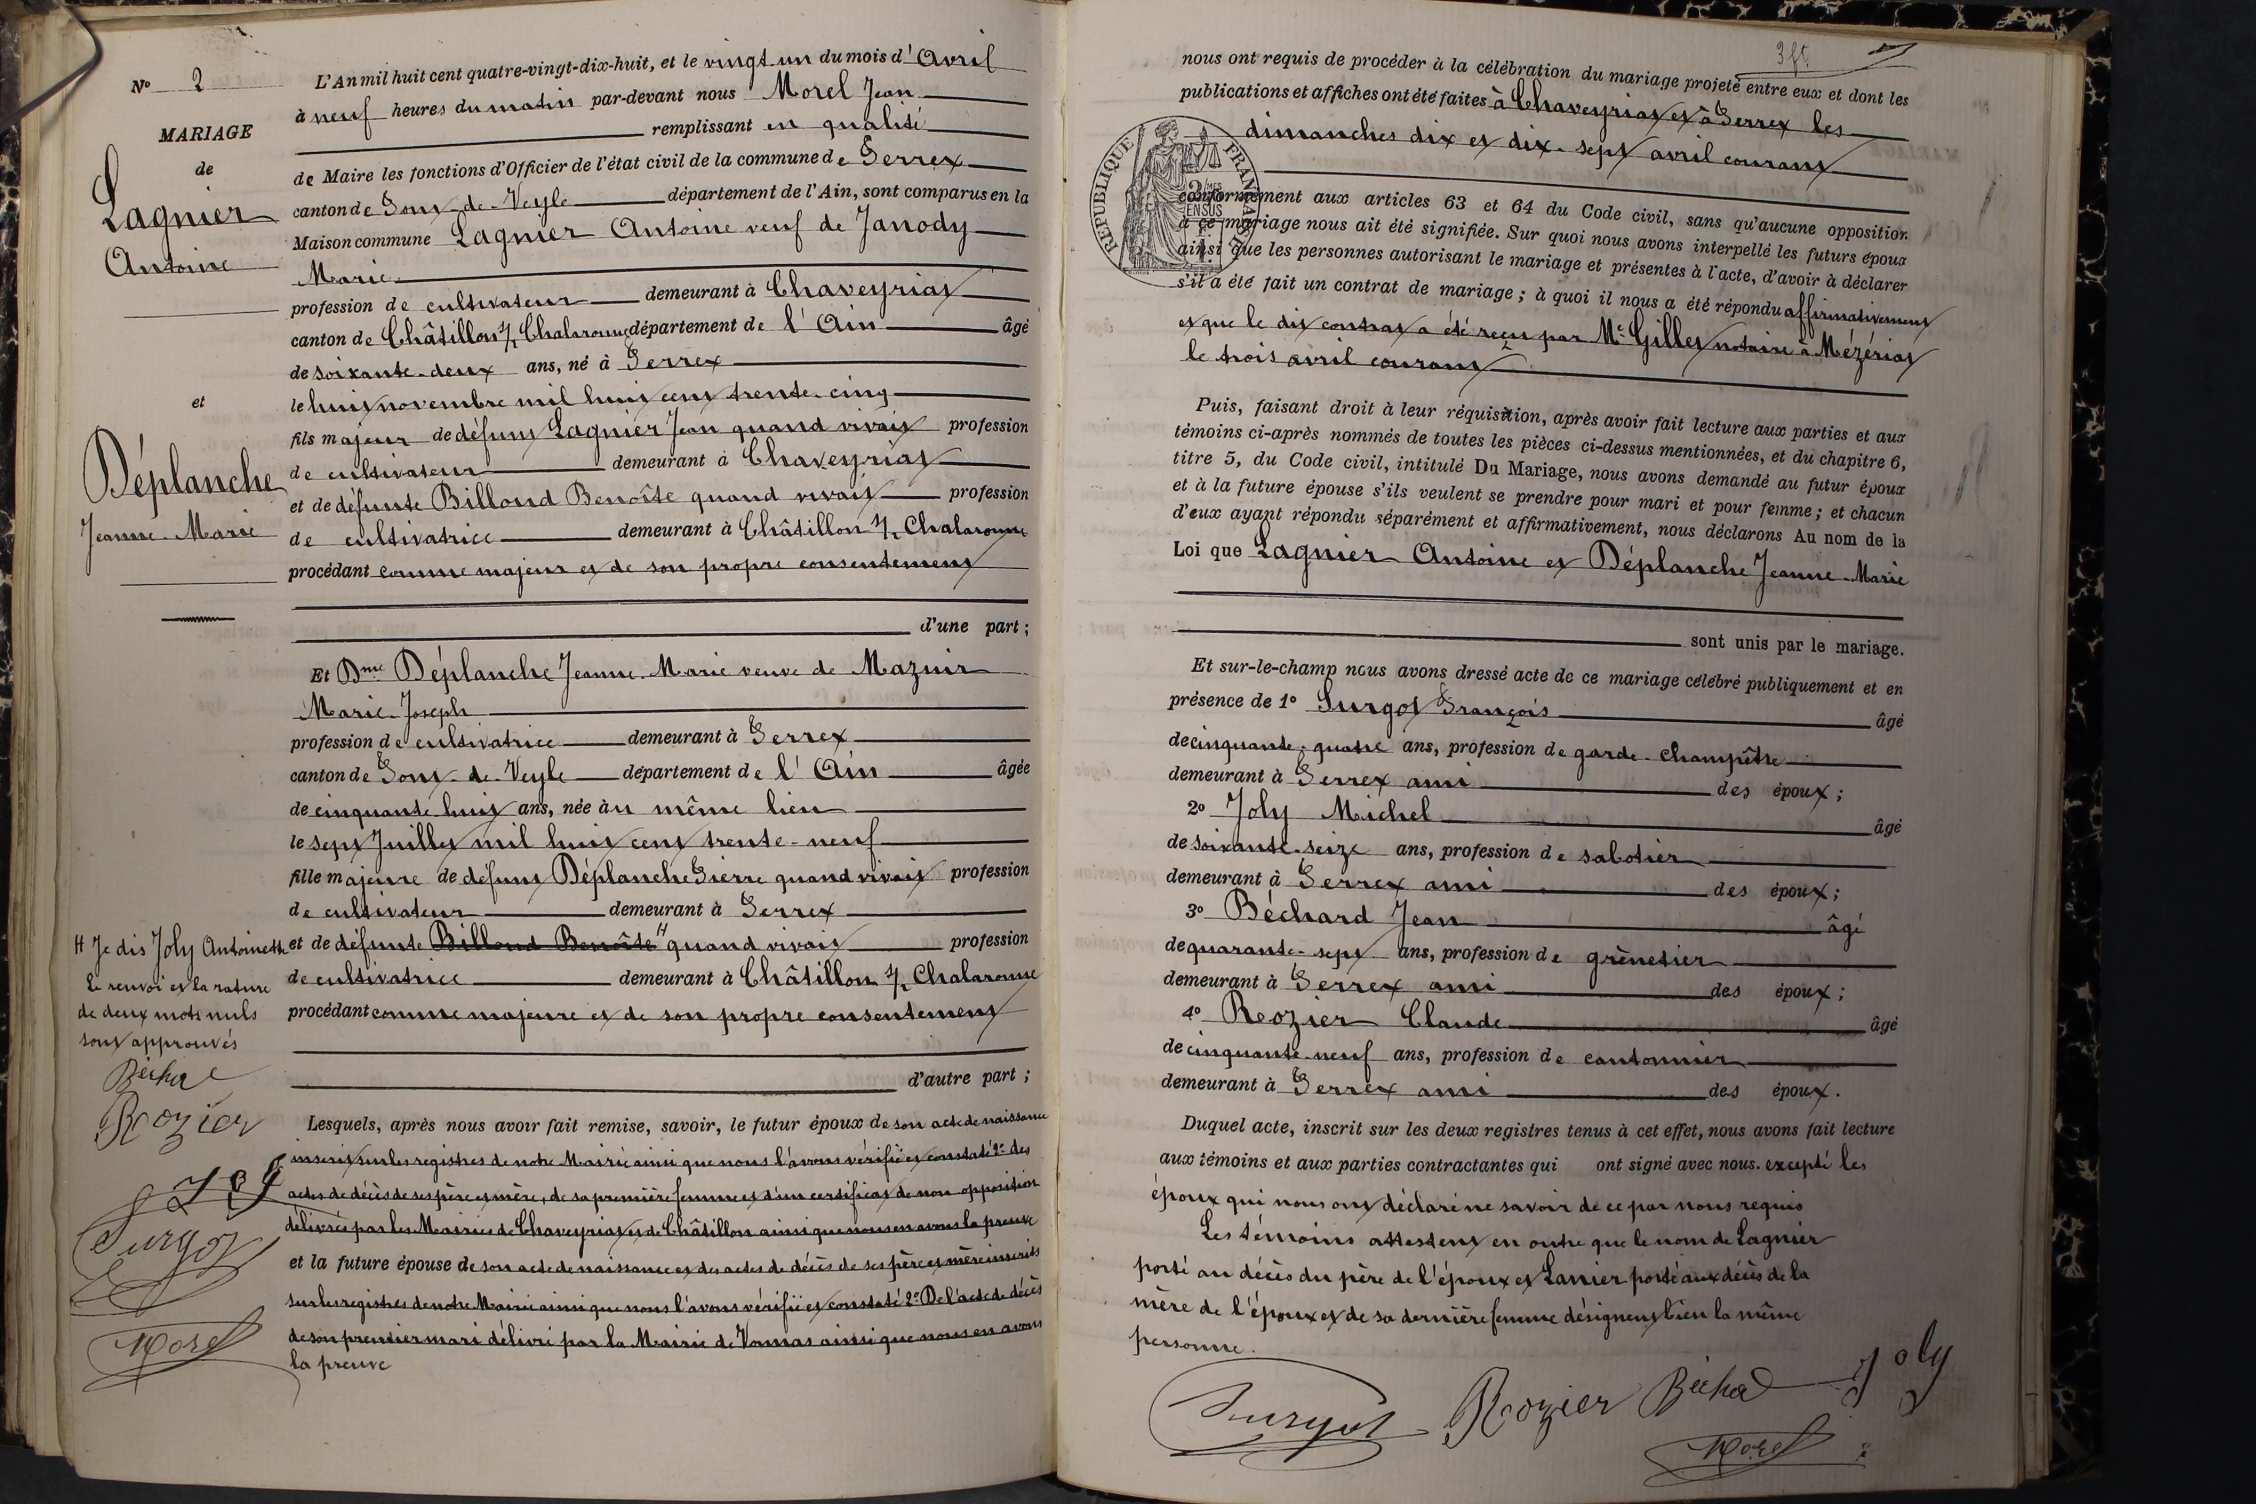 Nº 2
MARIAGE
de
Lagnier
Antoine
et
Déplanche
Jeanne-Marie
L'An mil huit cent quatre-vingt-dix-huit, et le vingt-un du mois d'Avril
à neuf heures du matin par-devant nous Morel Jean
remplissant en qualité
de Maire les fonctions d'Officier de l'état civil de la commune de Perrex
canton de Pont-de-Veyle département de l'Ain, sont comparus en la
Maison commune Lagnier Antoine veuf de Janody
Marie
profession de cultivateur demeurant à Chaveyriat
canton de Châtillon s/ Chalaronne département de l'Ain âgé
de soixante-deux ans, né à Perrex
le huit novembre mil huit cent trente-cinq
fils majeur de défunt Lagnier Jean quand vivait profession
de cultivateur demeurant à Chaveyriat
et de défunte Billoud Benoîte quand vivait profession
de cultivatrice demeurant à Châtillon s/ Chalaronne
procédant comme majeur et de son propre consentement
d'une part ;
Et Dme Déplanche Jeanne-Marie veuve de Mazuir
Marie-Joseph
profession de cultivatrice demeurant à Perrex
canton de Pont-de-Veyle département de l'Ain âgée
de cinquante-huit ans, née au même lieu
le sept Juillet mil huit cent trente-neuf
fille majeure de défunt Déplanche Pierre quand vivait profession
de cultivateur demeurant à Perrex
et de défunte Billoud Benoîte H quand vivait profession
de cultivatrice demeurant à Châtillon s/ Chalaronne
procédant comme majeure et de son propre consentement
d'autre part ;
H Je dis Joly Antoinette
Le renvoi et la rature
de deux mots nuls
sont approuvés
Béchard
Rozier
Joly
Purgot
Morel
Lesquels, après nous avoir fait remise, savoir, le futur époux de son acte de naissance
inscrit sur les registres de notre Mairie ainsi que nous l'avons vérifié et constaté 2º des
actes de décès de ses père et mère, de sa première femme et d'un certificat de non opposition
délivrés par les Mairies de Chaveyriat et de Châtillon ainsi que nous en avons la preuve
et la future épouse de son acte de naissance et des actes de décès de ses père et mère inscrits
sur les registres de notre Mairie ainsi que nous l'avons vérifié et constaté 2º De l'acte de décès
de son premier mari délivré par la Mairie de Vonnas ainsi que nous en avons
la preuve
3ft
nous ont requis de procéder à la célébration du mariage projeté entre eux et dont les
publications et affiches ont été faites à Chaveyriat et à Perrex les
dimanches dix et dix-sept avril courant
RÉPUBLIQUE FRANÇAISE
conformément aux articles 63 et 64 du Code civil, sans qu'aucune opposition
à ce mariage nous ait été signifiée. Sur quoi nous avons interpellé les futurs époux
ainsi que les personnes autorisant le mariage et présentes à l'acte, d'avoir à déclarer
s'il a été fait un contrat de mariage ; à quoi il nous a été répondu affirmativement
et que le dit contrat a été reçu par Me Gillet notaire à Mézériat
le trois avril courant
Puis, faisant droit à leur réquisition, après avoir fait lecture aux parties et aux
témoins ci-après nommés de toutes les pièces ci-dessus mentionnées, et du chapitre 6,
titre 5, du Code civil, intitulé Du Mariage, nous avons demandé au futur époux
et à la future épouse s'ils veulent se prendre pour mari et pour femme ; et chacun
d'eux ayant répondu séparément et affirmativement, nous déclarons Au nom de la
Loi que Lagnier Antoine et Déplanche Jeanne-Marie
sont unis par le mariage.
Et sur-le-champ nous avons dressé acte de ce mariage célébré publiquement et en
présence de 1º Purgot François âgé
de cinquante-quatre ans, profession de garde-champêtre
demeurant à Perrex ami des époux ;
2º Joly Michel âgé
de soixante-seize ans, profession de sabotier
demeurant à Perrex ami des époux ;
3º Béchard Jean âgé
de quarante-sept ans, profession de grènetier
demeurant à Perrex ami des époux ;
4º Rozier Claude âgé
de cinquante-neuf ans, profession de cantonnier
demeurant à Perrex ami des époux.
Duquel acte, inscrit sur les deux registres tenus à cet effet, nous avons fait lecture
aux témoins et aux parties contractantes qui ont signé avec nous. excepté les
époux qui nous ont déclaré ne savoir de ce par nous requis
Les témoins attestent en outre que le nom de Lagnier
porté au décès du père de l'époux et Lanier porté aux décès de la
mère de l'époux et de sa dernière femme désignent bien la même
personne.
Purgot Rozier Béchard Joly
Morel